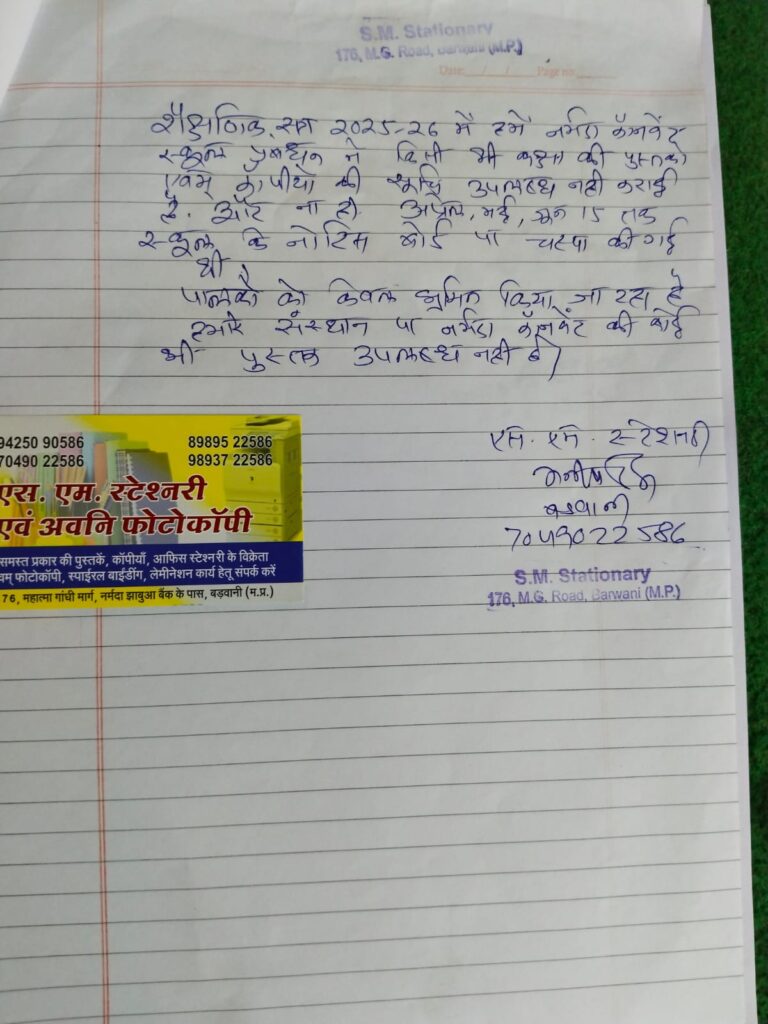 S.M. Stationary
176, M.G. Road, Barwani (M.P.)
Date: / / Page no.
शैक्षणिक सत्र 2025-26 में हमें नर्मदा कॅान्वेंट
स्कूल प्रबंधन ने किसी भी कक्षा की पुस्तको
एवम् कापीयों की सूचि उपलब्ध नही कराई
है. और ना ही अप्रैल, मई, जून 15 तक
स्कूल के नोटिस बोर्ड पर चस्पा की गई
थी
पालकों को केवल भ्रमित किया जा रहा है
हमारे संस्थान पर नर्मदा कॅान्वेंट की कोई
भी पुस्तक उपलब्ध नही है।
एस. एम. स्टेशनरी
बडवानी
7049022586
S.M. Stationary
176, M.G. Road, Barwani (M.P.)
94250 90586 89895 22586
70490 22586 98937 22586
एस. एम. स्टेश्नरी
एवं अवनि फोटोकॉपी
समस्त प्रकार की पुस्तकें, कॉपीयाँ, आफिस स्टेशनरी के विक्रेता
एवम् फोटोकॉपी, स्पाईरल बाईडींग, लेमीनेशन कार्य हेतू संपर्क करें
176, महात्मा गांधी मार्ग, नर्मदा झाबुआ बैंक के पास, बड़वानी (म.प्र.)